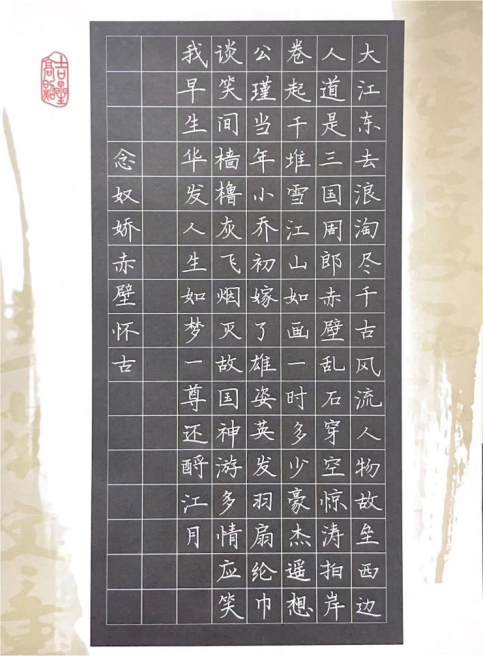 大江东去浪淘尽千古风流人物故垒西边
人道是三国周郎赤壁乱石穿空惊涛拍岸
卷起千堆雪江山如画一时多少豪杰遥想
公瑾当年小乔初嫁了雄姿英发羽扇纶巾
谈笑间樯橹灰飞烟灭故国神游多情应笑
我早生华发人生如梦一尊还酹江月
念奴娇赤壁怀古
吉星高照